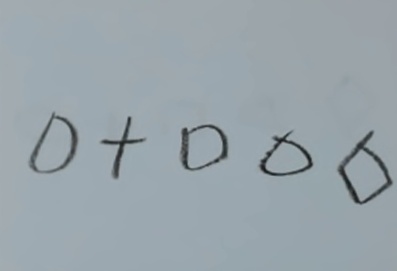 0 + 0 0 0